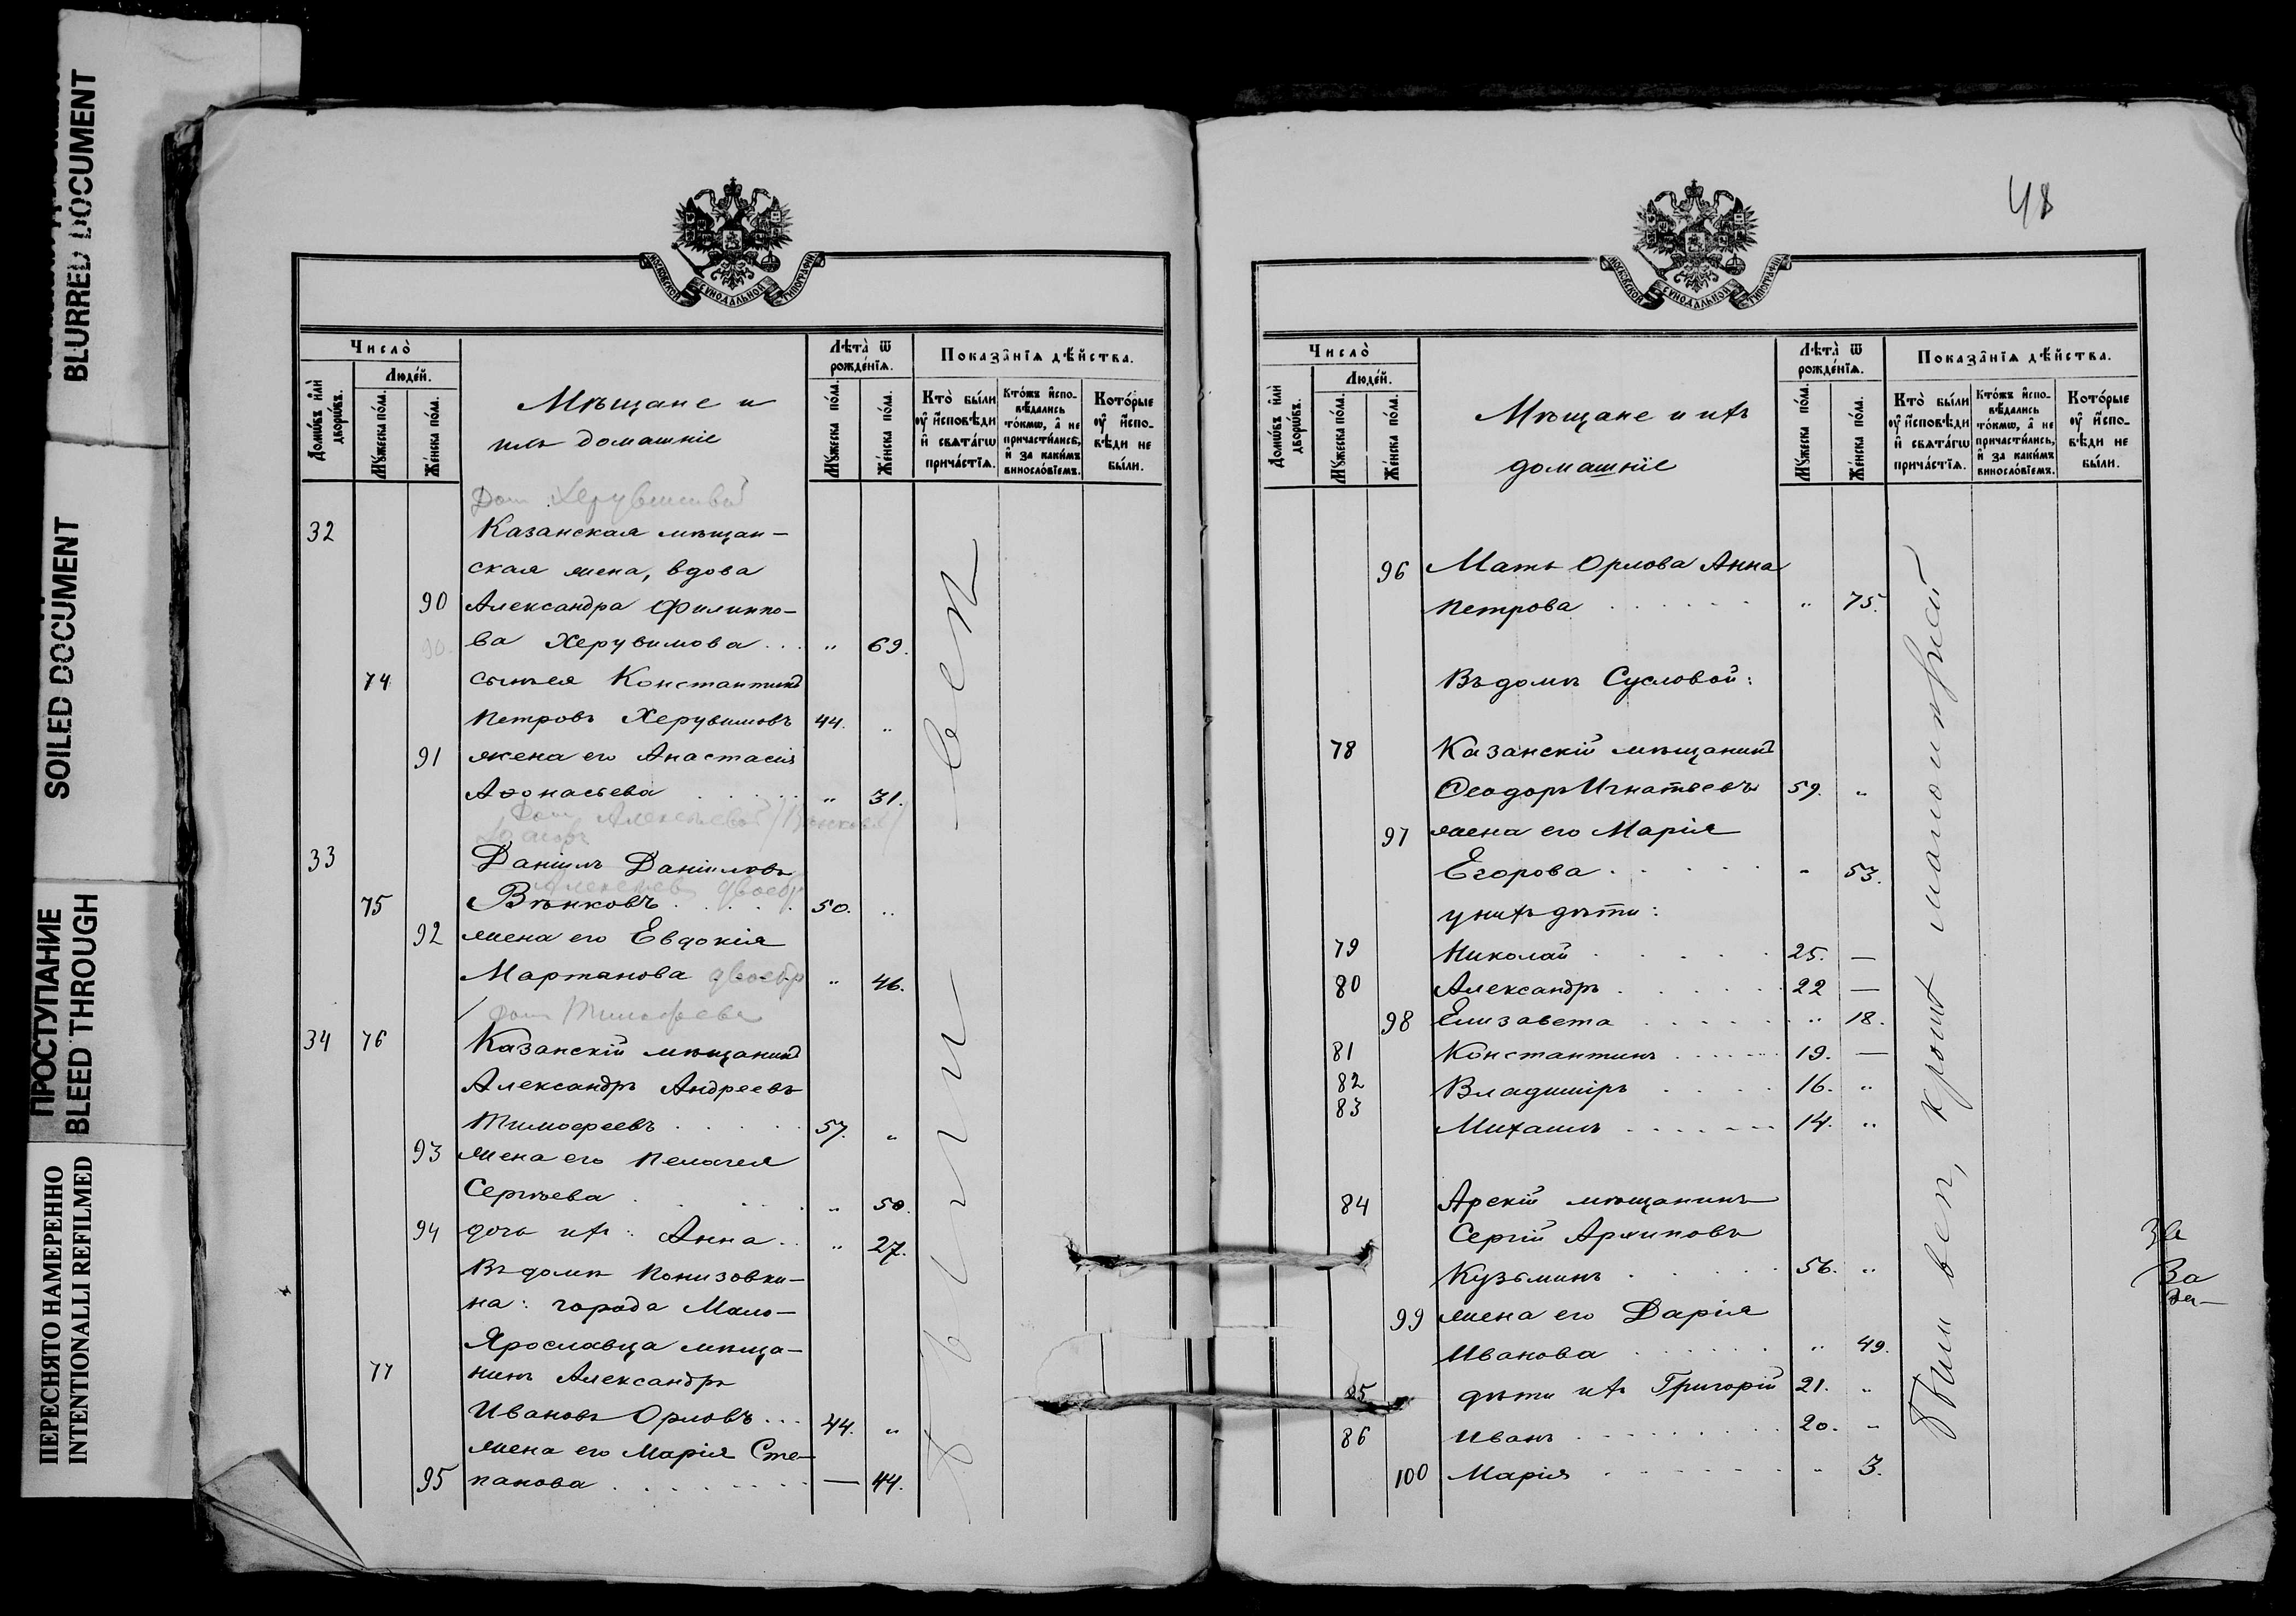 BLURRED DOCUMENT
SOILED DOCUMENT
ПРОСТУПАНИЕ
BLEED THROUGH
ПЕРЕСНЯТО НАМЕРЕННО
INTENTIONALLI REFILMED
МОСКОВСКОЙ СУНОДАЛЬНОЙ ТИПОГРАФІИ
Число̀
Людей.
Домѡвъ илѝ дворѡвъ.
Мꙋжеска по́ла.
Же́нска по́ла.
Мѣщане и
ихъ домашніе
Лѣта̀ ѿ рождéнїѧ.
Мꙋжеска по́ла.
Же́нска по́ла.
Показа̂нїѧ дѣ́йства.
Кто̀ бы́ли оу҆ и҆сповѣди и҆ свѧта́гѡ прича́стїѧ.
Кто́жъ и҆сповѣдались то́кмѡ, а҆ не причасти́лись, и҆ за каки́мъ винослóвїемъ.
Кото́рые оу҆ и҆сповѣди не бы́ли.
Дом Херувимовой
32 Казанская мѣщан-
ская жена, вдова
90 Александра Филиппо-
90. ва Херувимова ... „ 69.
74 сынъ ея Константинъ
Петровъ Херувимовъ 44. „
91 жена его Анастасія
Аѳонасьева „ 31.
Дом Алексѣевой /Вѣнковой/
33 Даніилъ Даніиловъ
Алексѣев двоебр
75 Вѣнковъ 50. „
92 жена его Евдокія
Мартанова двоебр „ 46.
дом Тимофеева
34 76 Казанскій мѣщанинъ
Александръ Андреевъ
Тимофеевъ 57. „
93 жена его Пелагея
Сергѣева „ 50.
94 дочь ихъ: Анна „ 27.
Въ домѣ Понизовки-
на: города Мало-
Ярославца мѣща-
77 нинъ Александръ
Ивановъ Орловъ ... 44. „
жена его Марія Сте-
95 панова — 44.
Были всѣ
48
МОСКОВСКОЙ СУНОДАЛЬНОЙ ТИПОГРАФІИ
Число̀
Людей.
Домѡвъ илѝ дворѡвъ.
Мꙋжеска по́ла.
Же́нска по́ла.
Мѣщане и ихъ
домашніе
Лѣта̀ ѿ рождéнїѧ.
Мꙋжеска по́ла.
Же́нска по́ла.
Показа̂нїѧ дѣ́йства.
Кто̀ бы́ли оу҆ и҆сповѣди и҆ свѧта́гѡ прича́стїѧ.
Кто́жъ и҆сповѣдались то́кмѡ, а҆ не причасти́лись, и҆ за каки́мъ винослóвїемъ.
Кото́рые оу҆ и҆сповѣди не бы́ли.
96 Мать Орлова Анна
Петрова „ 75.
Въ домѣ Сусловой:
78 Казанскій мѣщанинъ
Ѳеодоръ Игнатьевъ 59. „
97 жена его Марія
Егорова - 53.
у нихъ дѣти:
79 Николай 25. —
80 Александръ 22 —
98 Елизавета „ 18.
81 Константинъ 19. —
82 Владиміръ 16. „
83 Михаилъ 14. „
84 Арскій мѣщанинъ
Сергій Архиповъ
Кузьминъ 56. „
99 жена его Дарія
Иванова „ 49.
85 дѣти ихъ Григорій 21. „
86 Иванъ 20. -
100 Марія „ 3.
Были всѣ, кромѣ малолѣтней
За